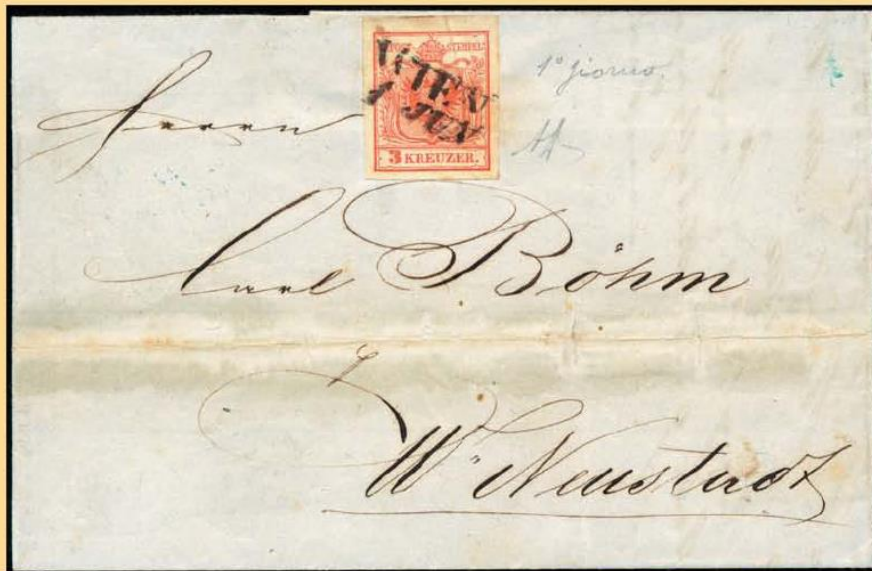 STEMPEL
WIEN
1 JUN
3 KREUZER.
1° giorno.
Herrn
Carl Böhm
W. Neustadt